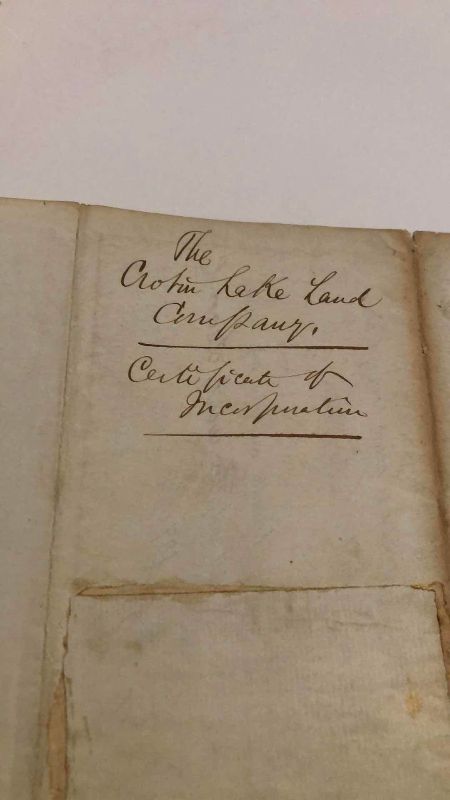 The
Croton Lake Land
Company.
Certificate of
Incorporation